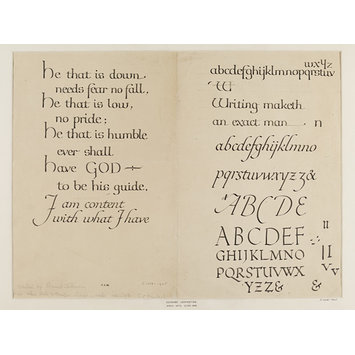 he that is down
needs fear no fall,
he that is low,
no pride;
he that is humble
ever shall
have GOD
to be his guide.
I am content
with what I have
wxyz
abcdefghijklmnopqrstuv
W
Writing maketh
an exact man n
abcdefghijklmno
pqrstuvwxyz z&
ABCDE
ABCDEF
GHIJKLMN
QRSTUVWX
YZZ &